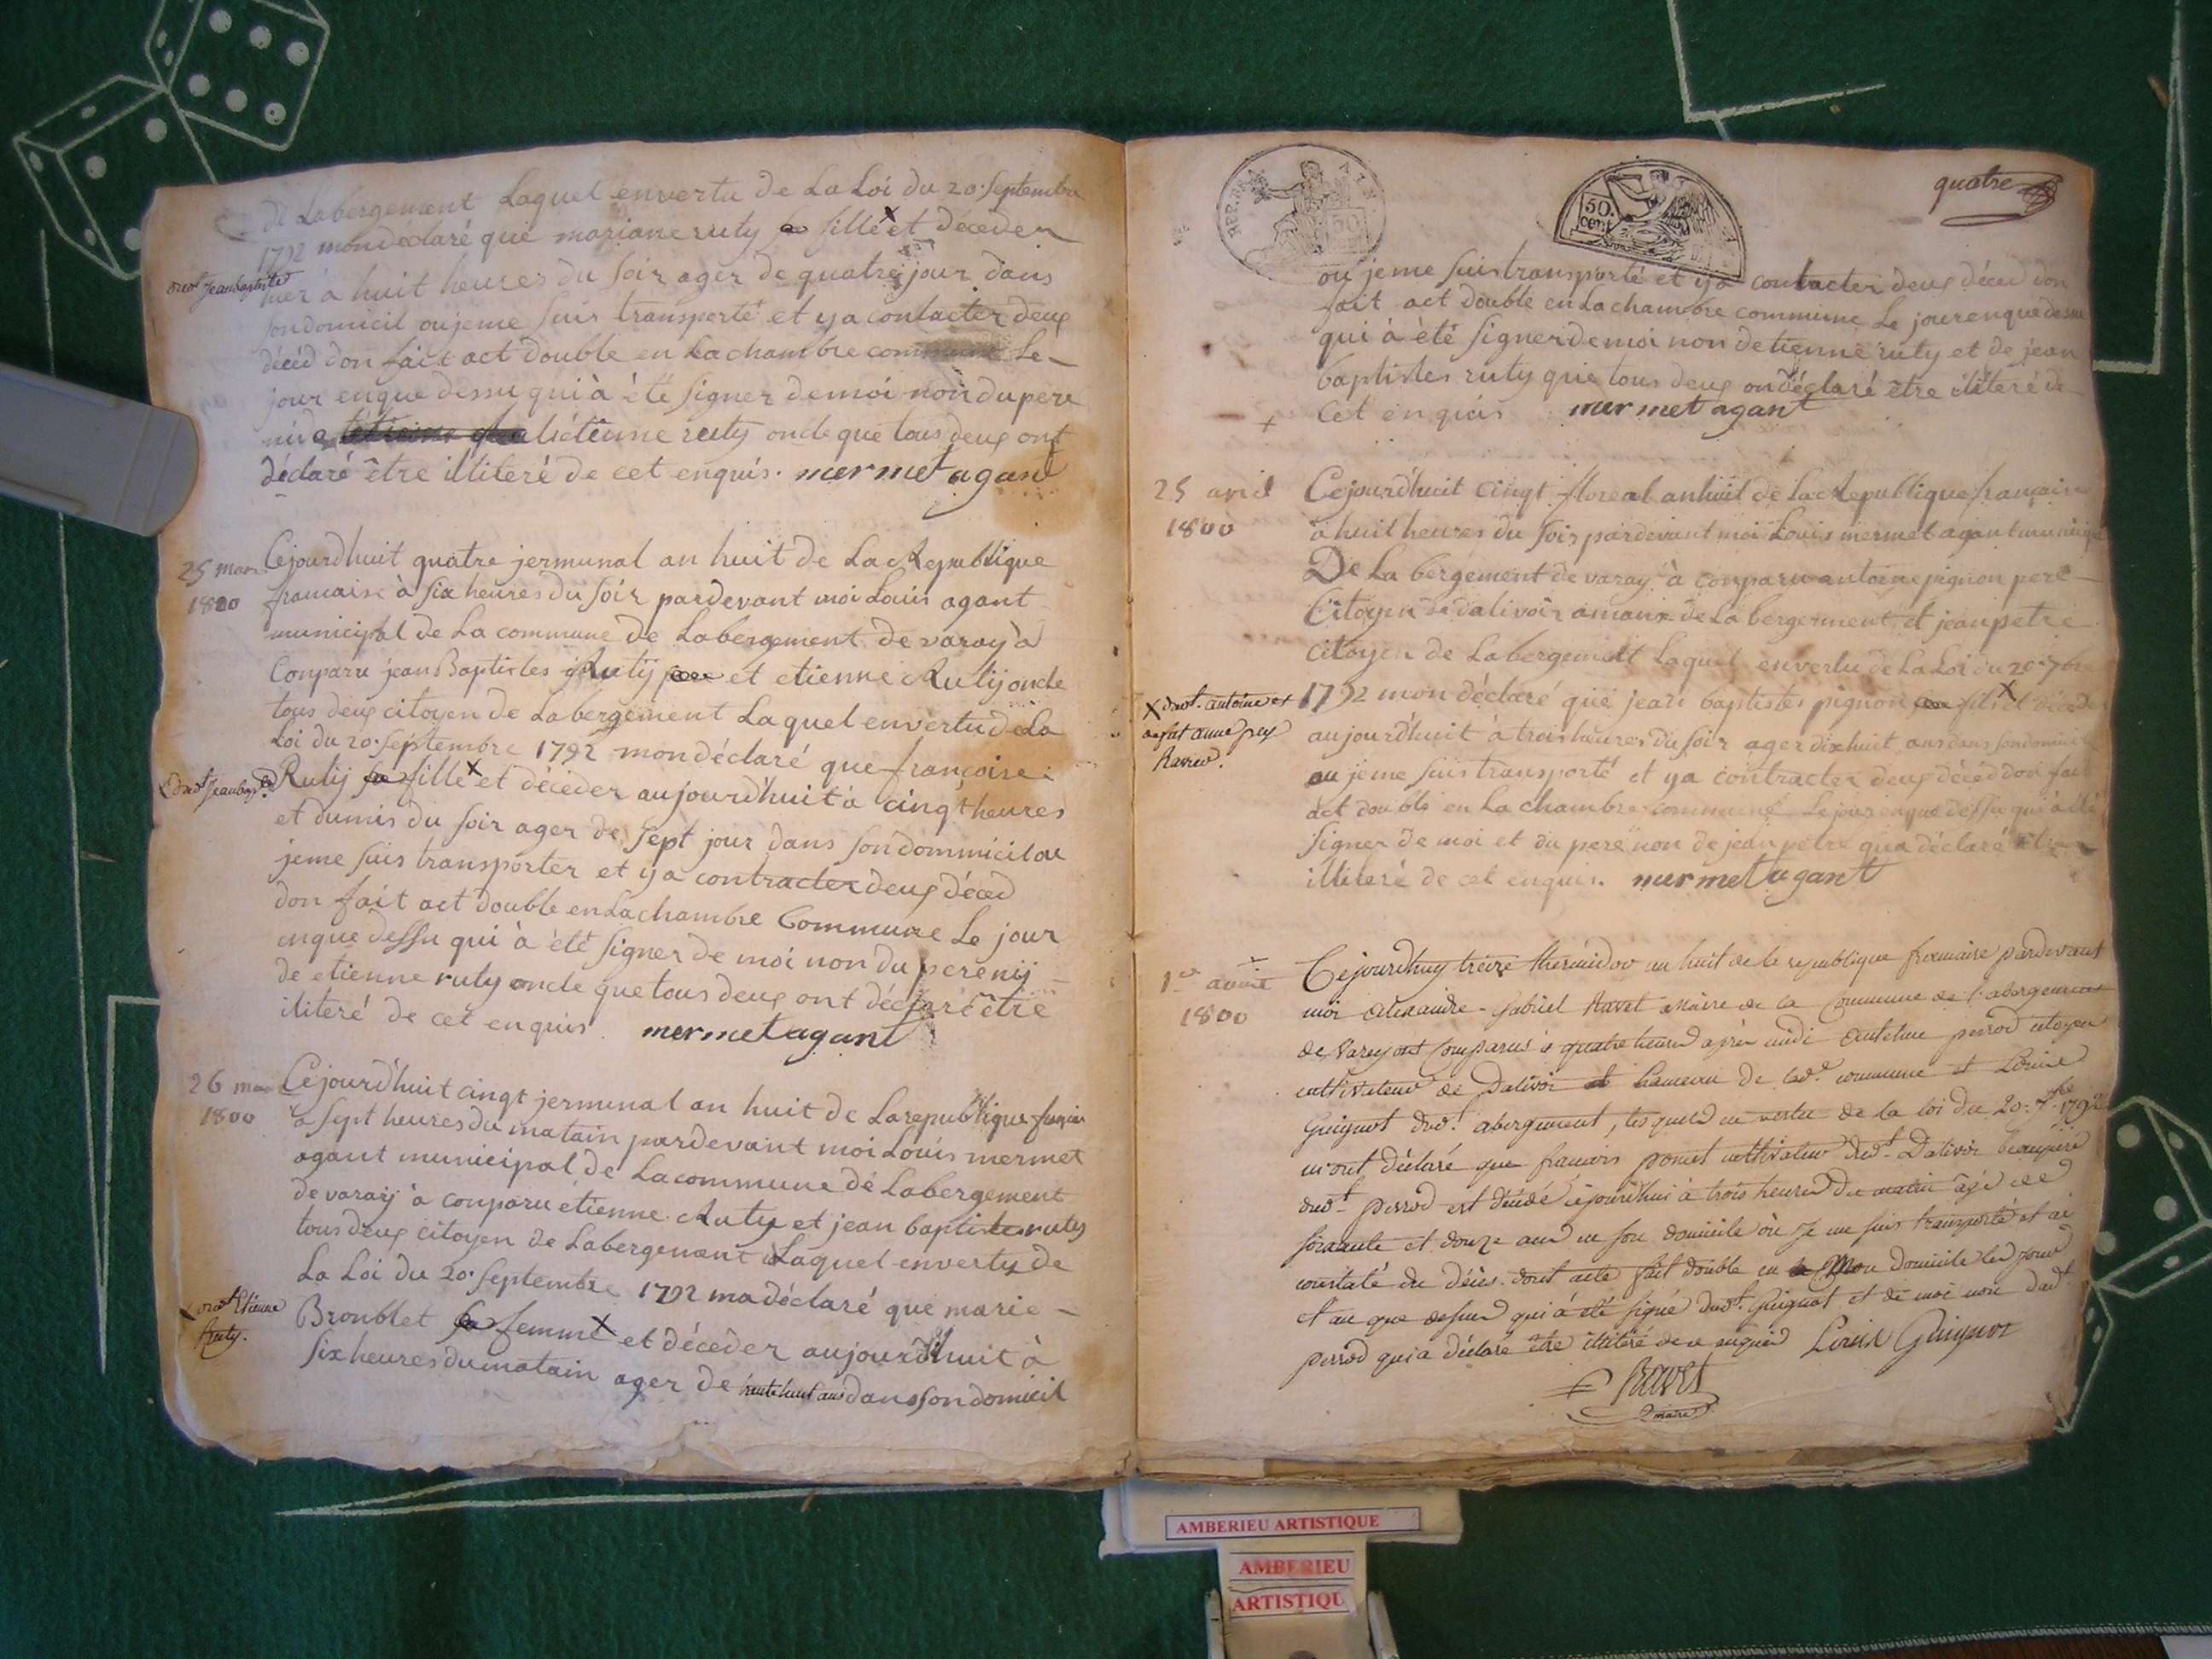 de Labergement Laquel envertu de La Loi du 20. Septembre
1792 mondeclaré que mariane ruty sa fille x et déceder
dud.t Jeanbaptiste
hier à huit heures du soir ager de quatre jour dans
son domicil oujeme suis transporté et ya contacter deux
décéd don fait act double en La chambre commune Le
jour enque dessu qui à été signer de moi non du pere
ni étienne ruty oncle que tous deux ont
déclaré être illiteré de cet enquis. mermet agant
25 mars
1800
Cejourdhuit quatre jermunal an huit de La Republique
francaise à six heures du soir pardevant moi Louis agant
municipal de La commune de Labergement de varay à
Conparu jean Baptistes Rutij et etienne Rutij oncle
tous deux citoyen de Labergement Laquel envertu de La
Loi du 20. Septembre 1792 mondéclaré que françoise
dud.t Jeanbapt.e
Rutij sa fille x et déceder aujourdhuit à cinqt heures
et dumis du soir ager de sept jour dans son dommicil ou
jeme suis transporter et ya contracter deux déced
don fait act double en La chambre Commune Le jour
enque dessu qui à été signer de moi non du pere nij
de etienne ruty oncle que tous deux ont déclaré être
iliteré de cet enquis mermet agant
26 mars
1800
Cejourd'huit cinqt jermunal an huit de La republique
à sept heures du matain pardevant moi Louis mermet
agant municipal de La commune de Labergement
de varaij à conparu étienne Ruty et jean baptistes ruty
tous deux citoyen de Labergement Laquel enverty de
La Loi du 20. Septembre 1792 ma déclaré que marie
x dud.t Etienne
Ruty.
Bronblet sa femme x et décéder aujourdhuit à
six heures du matain ager de trente huit ans dans son domicil
REP. FRA.
50
50. cent.
quatre
ou jeme suis transporté et ya contacter deux décéd don
fait act double en La chambre commune Le jour enque dessu
qui à été signer de moi non detienne ruty et de jean
baptistes ruty que tous deux on déclaré être iliteré de
cet enquis mermet agant
25 avril
1800
Cejourd'huit cinqt floreal an huit de La Republique francaise
à huit heures du soir pardevant moi Louis mermet agant municipal
De La bergement de varay à conparu antoine pignon pere
Citoyen de dalivoir amaux de La bergement et jean petre
citoyen de Labergement Laquel envertu de La Loi du 20. 7bre
x dud.t antoine et
de fut anne
Ravier.
1792 mon déclaré que jean baptistes pignon son fils x et déceder
aujourd'huit à trois heures du soir ager dixhuit ans dans son domicil
ou jeme suis transporté et ya contracter deux décéd don fait
act double en La chambre commune Le jour enque dessu qui à été
signer de moi et du pere non de jean petre qua déclaré être
illiteré de cet enquis. mermet agant
1er aout
1800
Cejourdhuy treize thermidor an huit de la republique francaise pardevant
moi Alexandre-Gabriel Ravet Maire de la Commune de l'abergement
de Varey ont comparus à quatre heures après midi Anthelme perrod citoyen
cultivateur de Dalivoir hameau de lad.e commune et Louise
Guignot dud.t abergement, lesquels en vertu de la loi du 20. 7bre 1792
m'ont déclaré que francois poncet cultivateur dud.t Dalivoir beaupère
dud.t perrod est décédé cejourdhui à trois heures du matin agé de
soixante et douze ans en son domicile où Je me suis transporté et ai
constaté du décès. dont acte fait double en Mon domicile les jour
et an que dessus qui a été signé dud.t Guignot et de moi non dud.t
perrod qui a déclaré être illitéré de ce enquis Louis Guignot
Ravet
maire
AMBERIEU ARTISTIQUE
AMBERIEU
ARTISTIQU